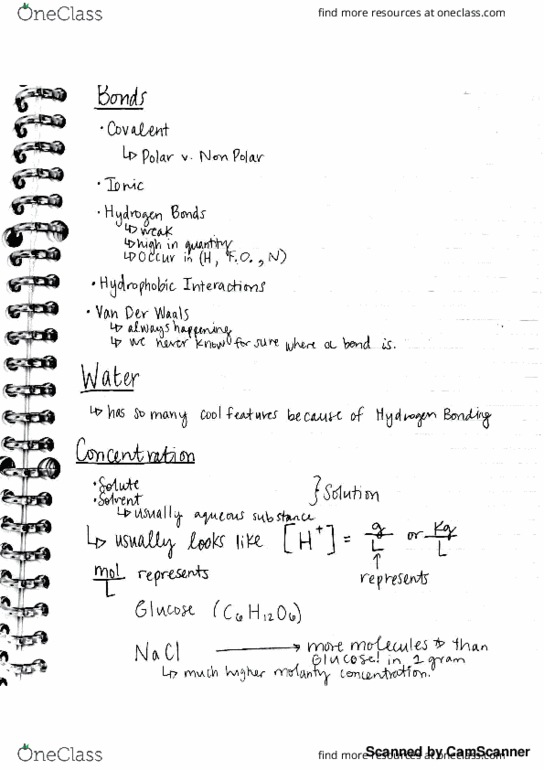 OneClass
find more resources at oneclass.com
Bonds
• Covalent
↳ Polar v. Non Polar
• Ionic
• Hydrogen Bonds
↳ weak
↳ high in quantity
↳ Occur in (H, F.O., N)
• Hydrophobic Interactions
• Van Der Waals
↳ always happening
↳ we never know for sure where a bond is.
Water
↳ has so many cool features because of Hydrogen Bonding
Concentration
• Solute
• Solvent
} Solution
↳ usually aqueous substance
↳ usually looks like [H⁺] = g/L or kg/L
↑
mol/L represents
represents
Glucose (C₆H₁₂O₆)
NaCl → more molecules than
Glucose! in 1 gram
↳ much higher molarity concentration.
OneClass
find more resources at oneclass.com
Scanned by CamScanner